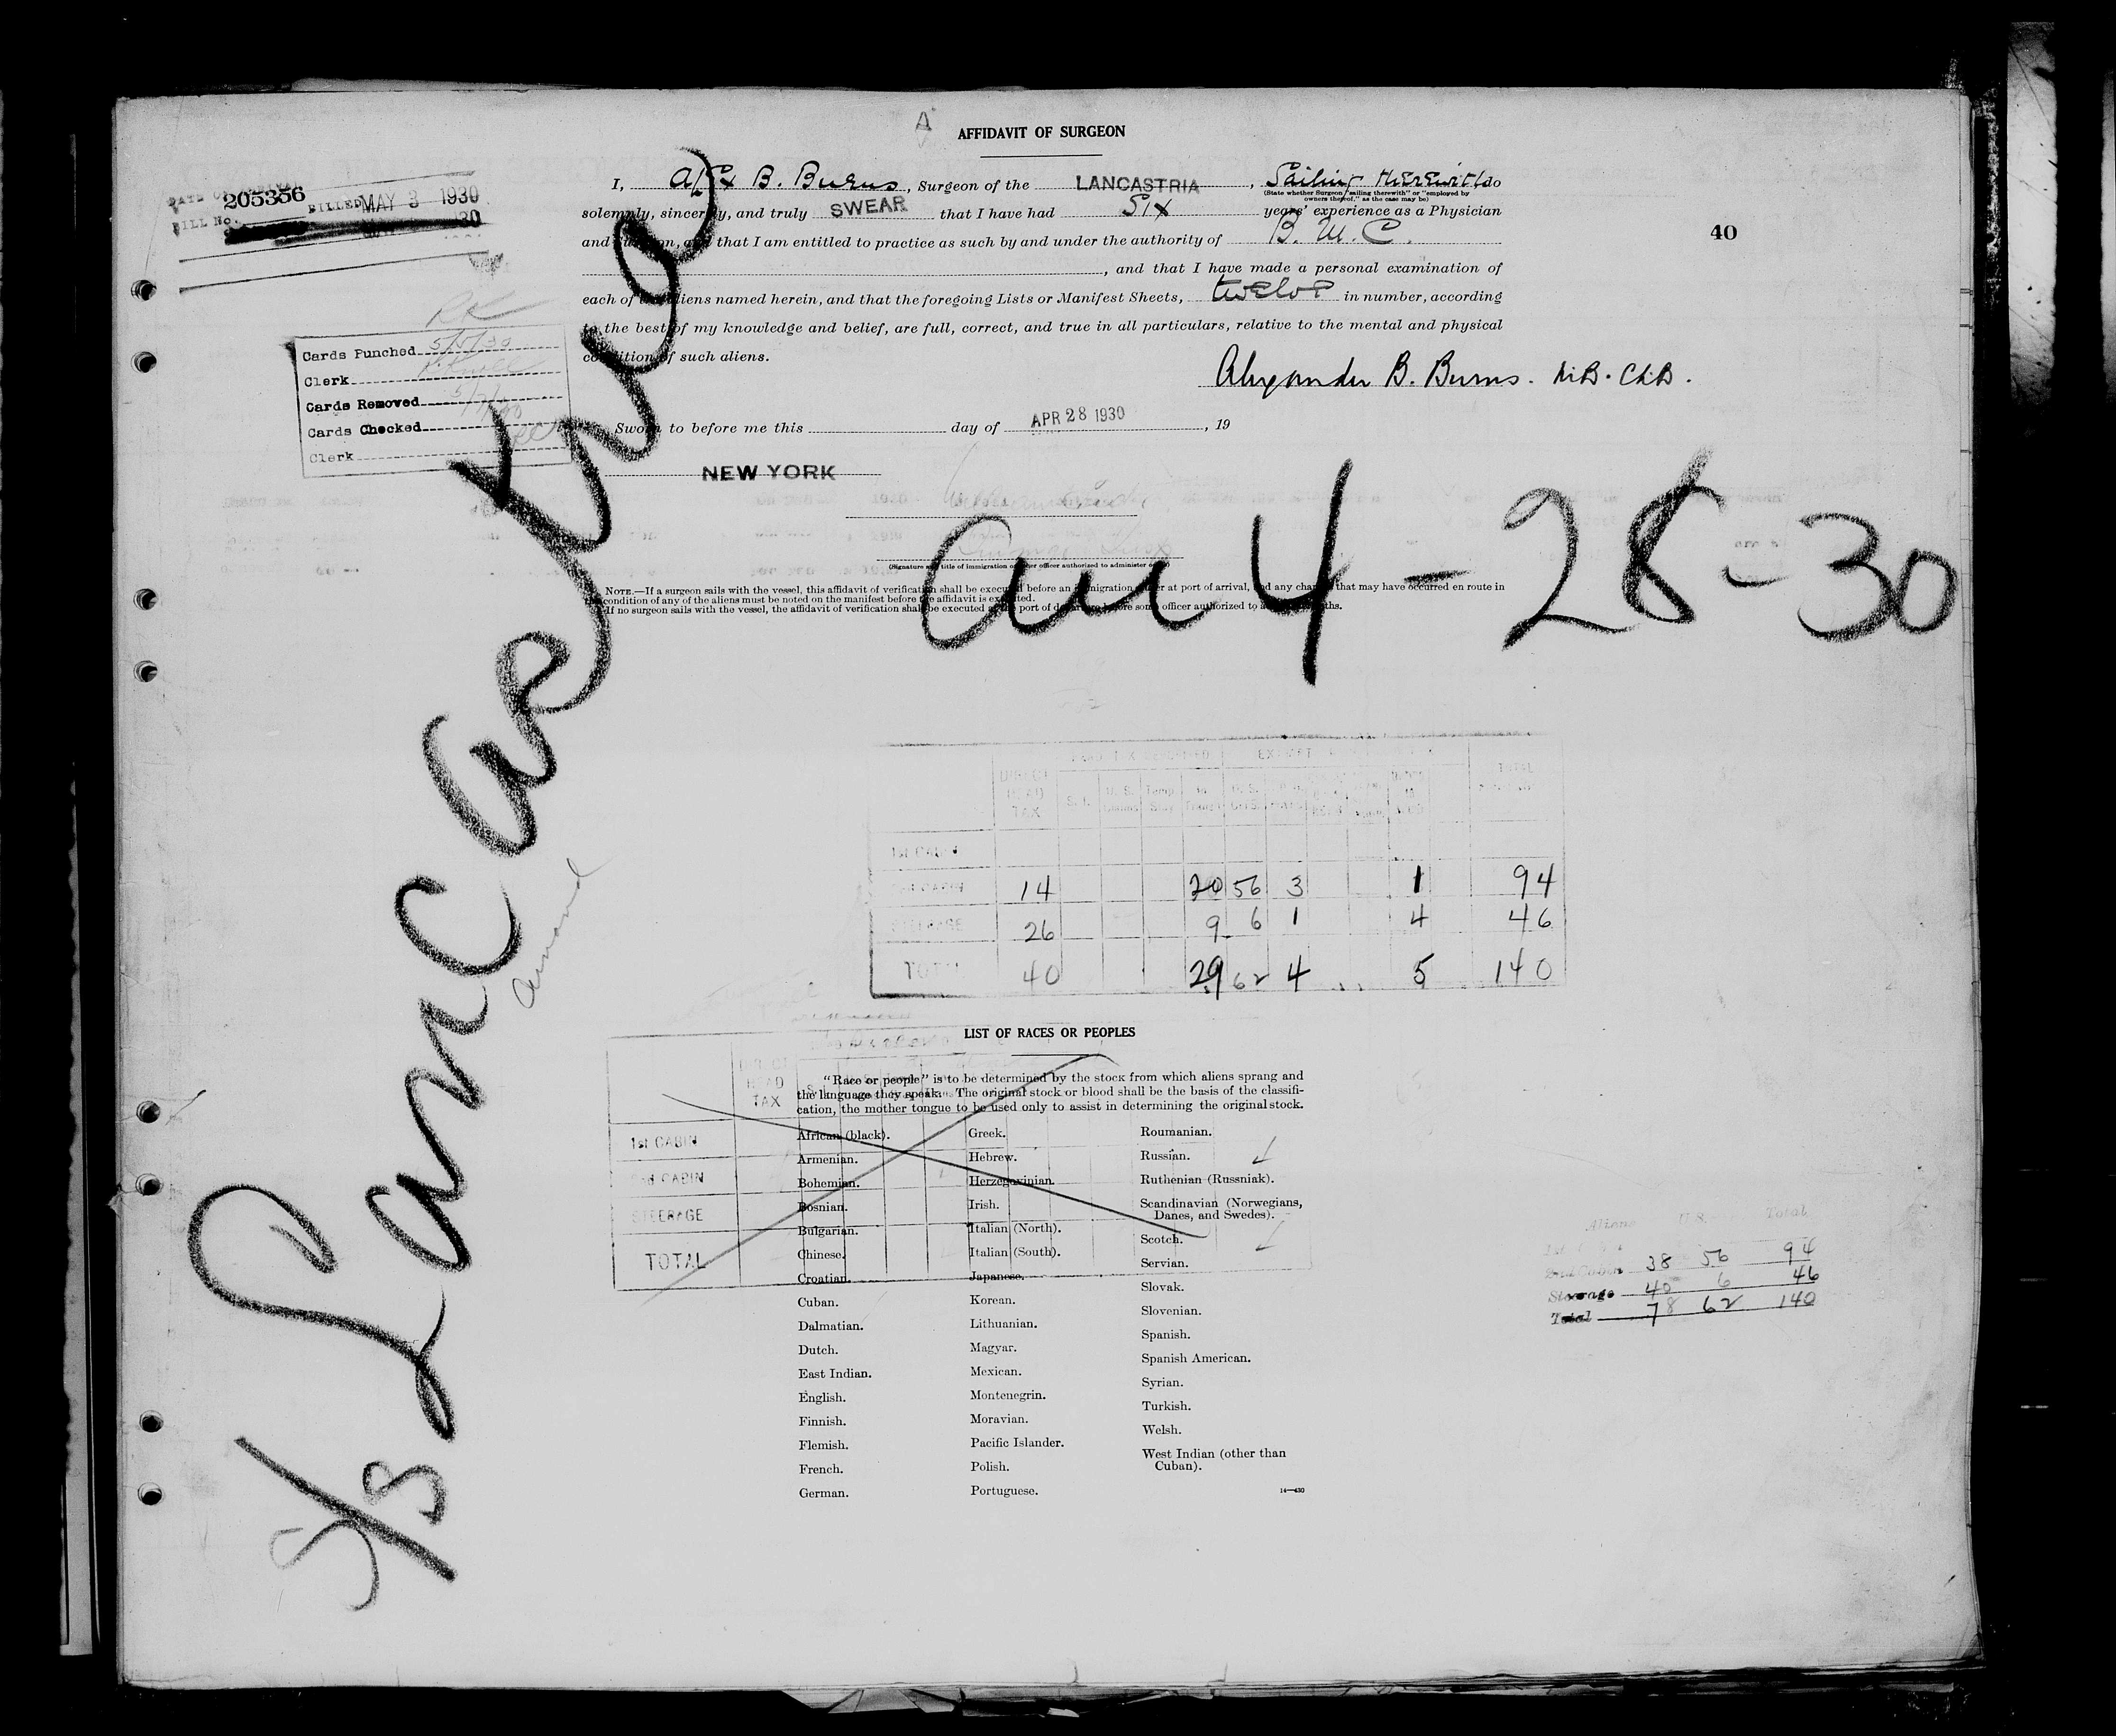 AFFIDAVIT OF SURGEON
I, Alex B. Burns, Surgeon of the LANCASTRIA, Sailing therewith do
(State whether Surgeon "sailing therewith" or "employed by
owners thereof," as the case may be)
solemnly, sincerely, and truly SWEAR that I have had Six years' experience as a Physician
and Surgeon, and that I am entitled to practice as such by and under the authority of B. M. C.
, and that I have made a personal examination of
each of the aliens named herein, and that the foregoing Lists or Manifest Sheets, twelve in number, according
to the best of my knowledge and belief, are full, correct, and true in all particulars, relative to the mental and physical
condition of such aliens.
Alexander B. Burns. M.B. Ch.B.
Sworn to before me this day of APR 28 1930, 19
NEW YORK
(Signature and title of immigration or other officer authorized to administer
NOTE.—If a surgeon sails with the vessel, this affidavit of verification shall be executed before an immigration officer at port of arrival, and any change that may have occurred en route in
condition of any of the aliens must be noted on the manifest before the affidavit is executed.
If no surgeon sails with the vessel, the affidavit of verification shall be executed at the port of departure before some officer authorized to administer oaths.
40
205356 BILLED MAY 3 1930
BILL No.
RK
Cards Punched 5/5/30
Clerk
Cards Removed 5/7/30
Cards Checked
Clerk
S/S Lancastria
arr 4-28-30
DIRECT HEAD TAX
TOTAL
1st CABIN
14 20 56 3 1 94
STEERAGE 26 9 6 1 4 46
TOTAL 40 29 62 4 5 140
LIST OF RACES OR PEOPLES
"Race or people" is to be determined by the stock from which aliens sprang and
the language they speak. The original stock or blood shall be the basis of the classifi-
cation, the mother tongue to be used only to assist in determining the original stock.
DIRECT HEAD TAX
1st CABIN
2nd CABIN
STEERAGE
TOTAL
African (black).
Armenian.
Bohemian.
Bosnian.
Bulgarian.
Chinese.
Croatian.
Cuban.
Dalmatian.
Dutch.
East Indian.
English.
Finnish.
Flemish.
French.
German.
Greek.
Hebrew.
Herzegovinian.
Irish.
Italian (North).
Italian (South).
Japanese.
Korean.
Lithuanian.
Magyar.
Mexican.
Montenegrin.
Moravian.
Pacific Islander.
Polish.
Portuguese.
Roumanian.
Russian.
Ruthenian (Russniak).
Scandinavian (Norwegians,
Danes, and Swedes).
Scotch.
Servian.
Slovak.
Slovenian.
Spanish.
Spanish American.
Syrian.
Turkish.
Welsh.
West Indian (other than
Cuban).
14—430
Aliens U.S. Total
2nd Cabin 38 56 94
Steerage 40 6 46
Total 78 62 140